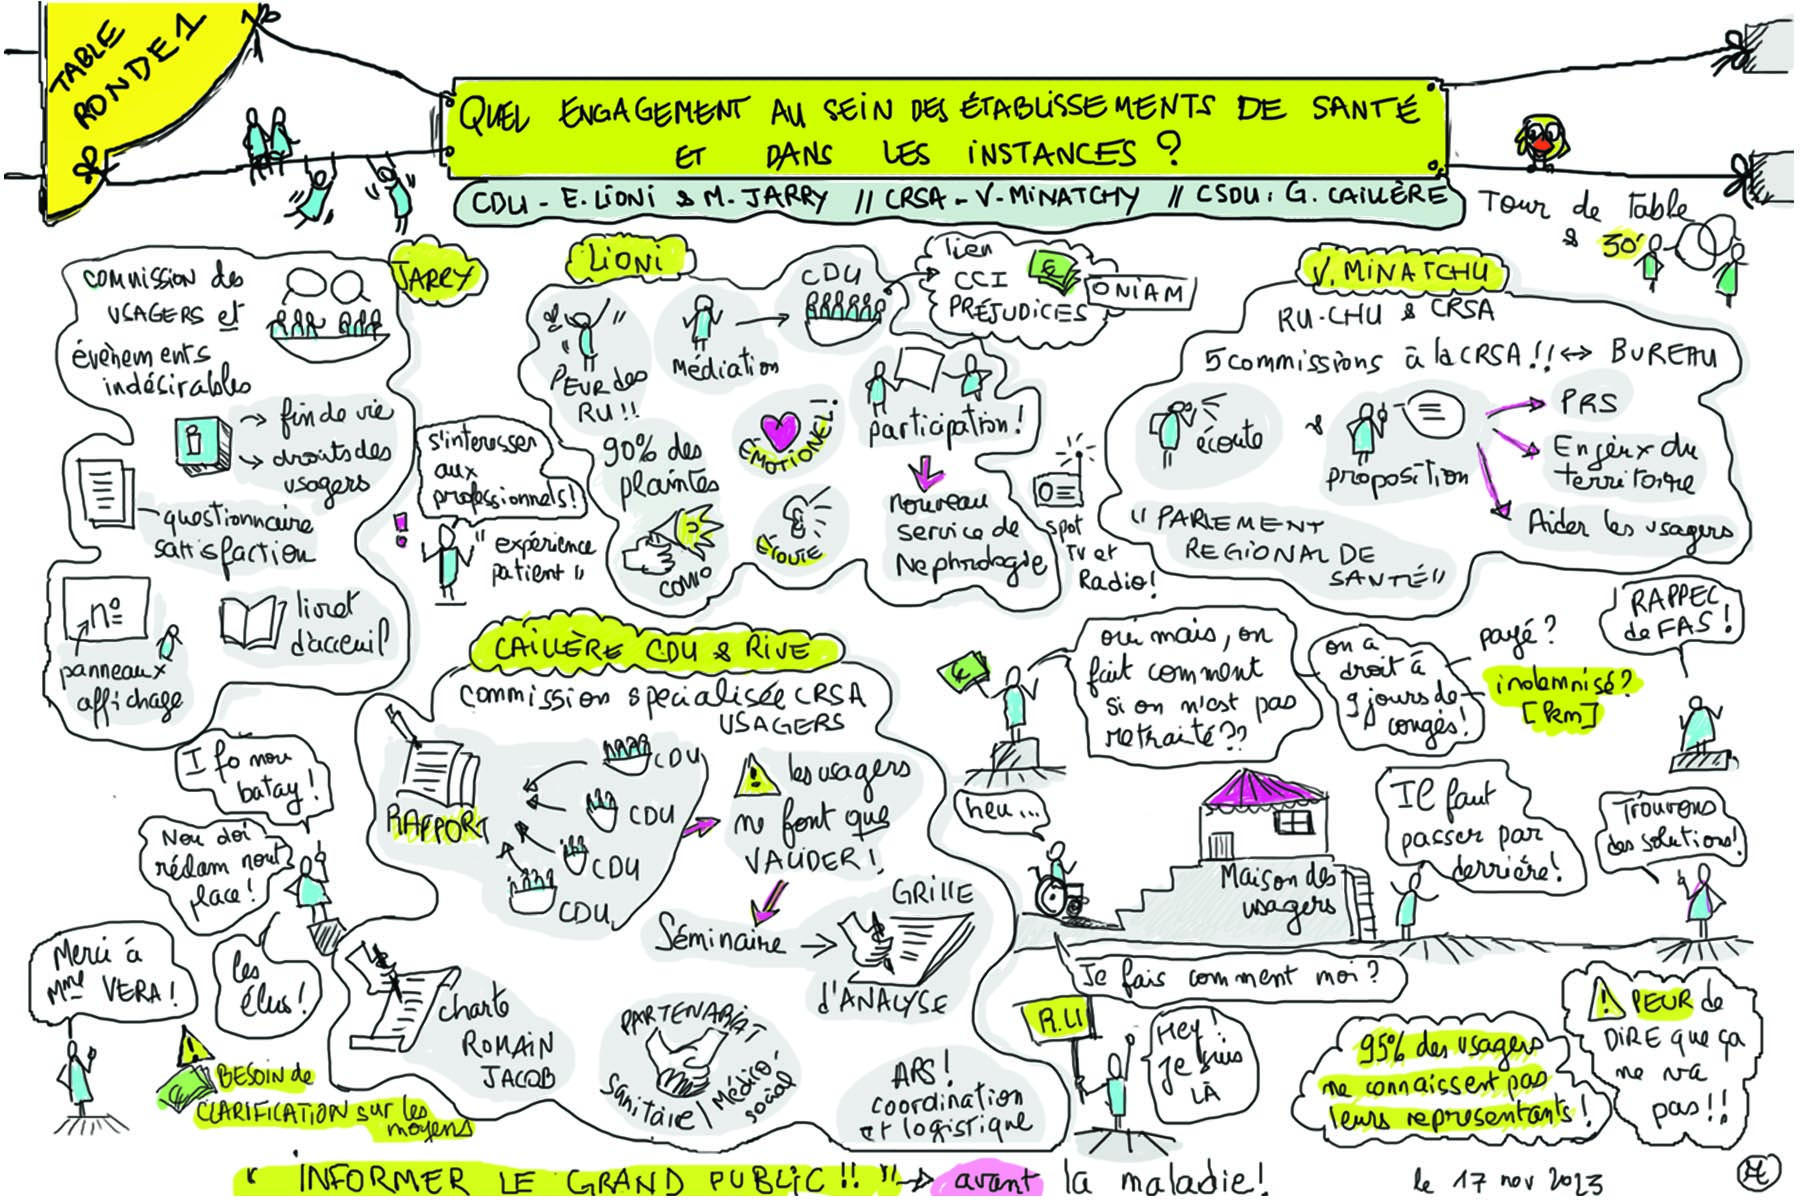 TABLE
RONDE 1
QUEL ENGAGEMENT AU SEIN DES ÉTABLISSEMENTS DE SANTÉ
ET DANS LES INSTANCES ?
CDU - E. LIONI & M. JARRY // CRSA - V. MINATCHY // CSDU : G. CAILLÈRE
Tour de table
& 30'
JARRY
COMMISSION des
USAGERS et
évènements
indésirables
i
fin de vie
droits des
usagers
questionnaire
satisfaction
n°
panneaux
affichage
livret
d'acceuil
s'interesser
aux
professionnels!
! "expérience
patient"
LIONI
PEUR des
RU!!
Médiation
CDU
lien
CCI
PRÉJUDICES
€
ONIAM
90% des
plaintes
COMO
ÉMOTIONEL!
ÉCOUTE
participation!
nouveau
service de
Nephrologie
spot
TV et
Radio!
V. MINATCHU
RU-CHU & CRSA
5 commissions à la CRSA!! ↔ BUREAU
écoute
&
proposition
PRS
Enjeux du
territoire
Aider les usagers
"PARLEMENT
REGIONAL DE
SANTÉ"
CAILLÈRE CDU & RIVE
Commission spécialisée CRSA
USAGERS
RAPPORT
CDU
CDU
CDU
CDU
! les usagers
ne font que
VALIDER!
Séminaire
GRILLE
d'ANALYSE
charte
ROMAIN
JACOB
PARTENARIAT
Sanitaire / Médico
social
ARS!
coordination
et logistique
I fo nou
batay!
Nou doi
réclam nout
place!
les
élus!
Merci à
Mme VERA!
!
€
BESOIN de
CLARIFICATION sur les
moyens
€
oui mais, on
fait comment
si on n'est pas
retraité??
on a
droit à
9 jours de
congés!
payé?
indemnisé?
[km]
RAPPEL
de FAS!
heu...
Maison des
usagers
Il faut
passer par
derrière!
Trouvons
des solutions!
Je fais comment moi?
R.U
Hey!
je suis
LÀ
95% des usagers
ne connaissent pas
leurs representants!
! PEUR de
DIRE que ça
ne va
pas!!
"INFORMER LE GRAND PUBLIC!!" → avant la maladie!
le 17 nov 2023